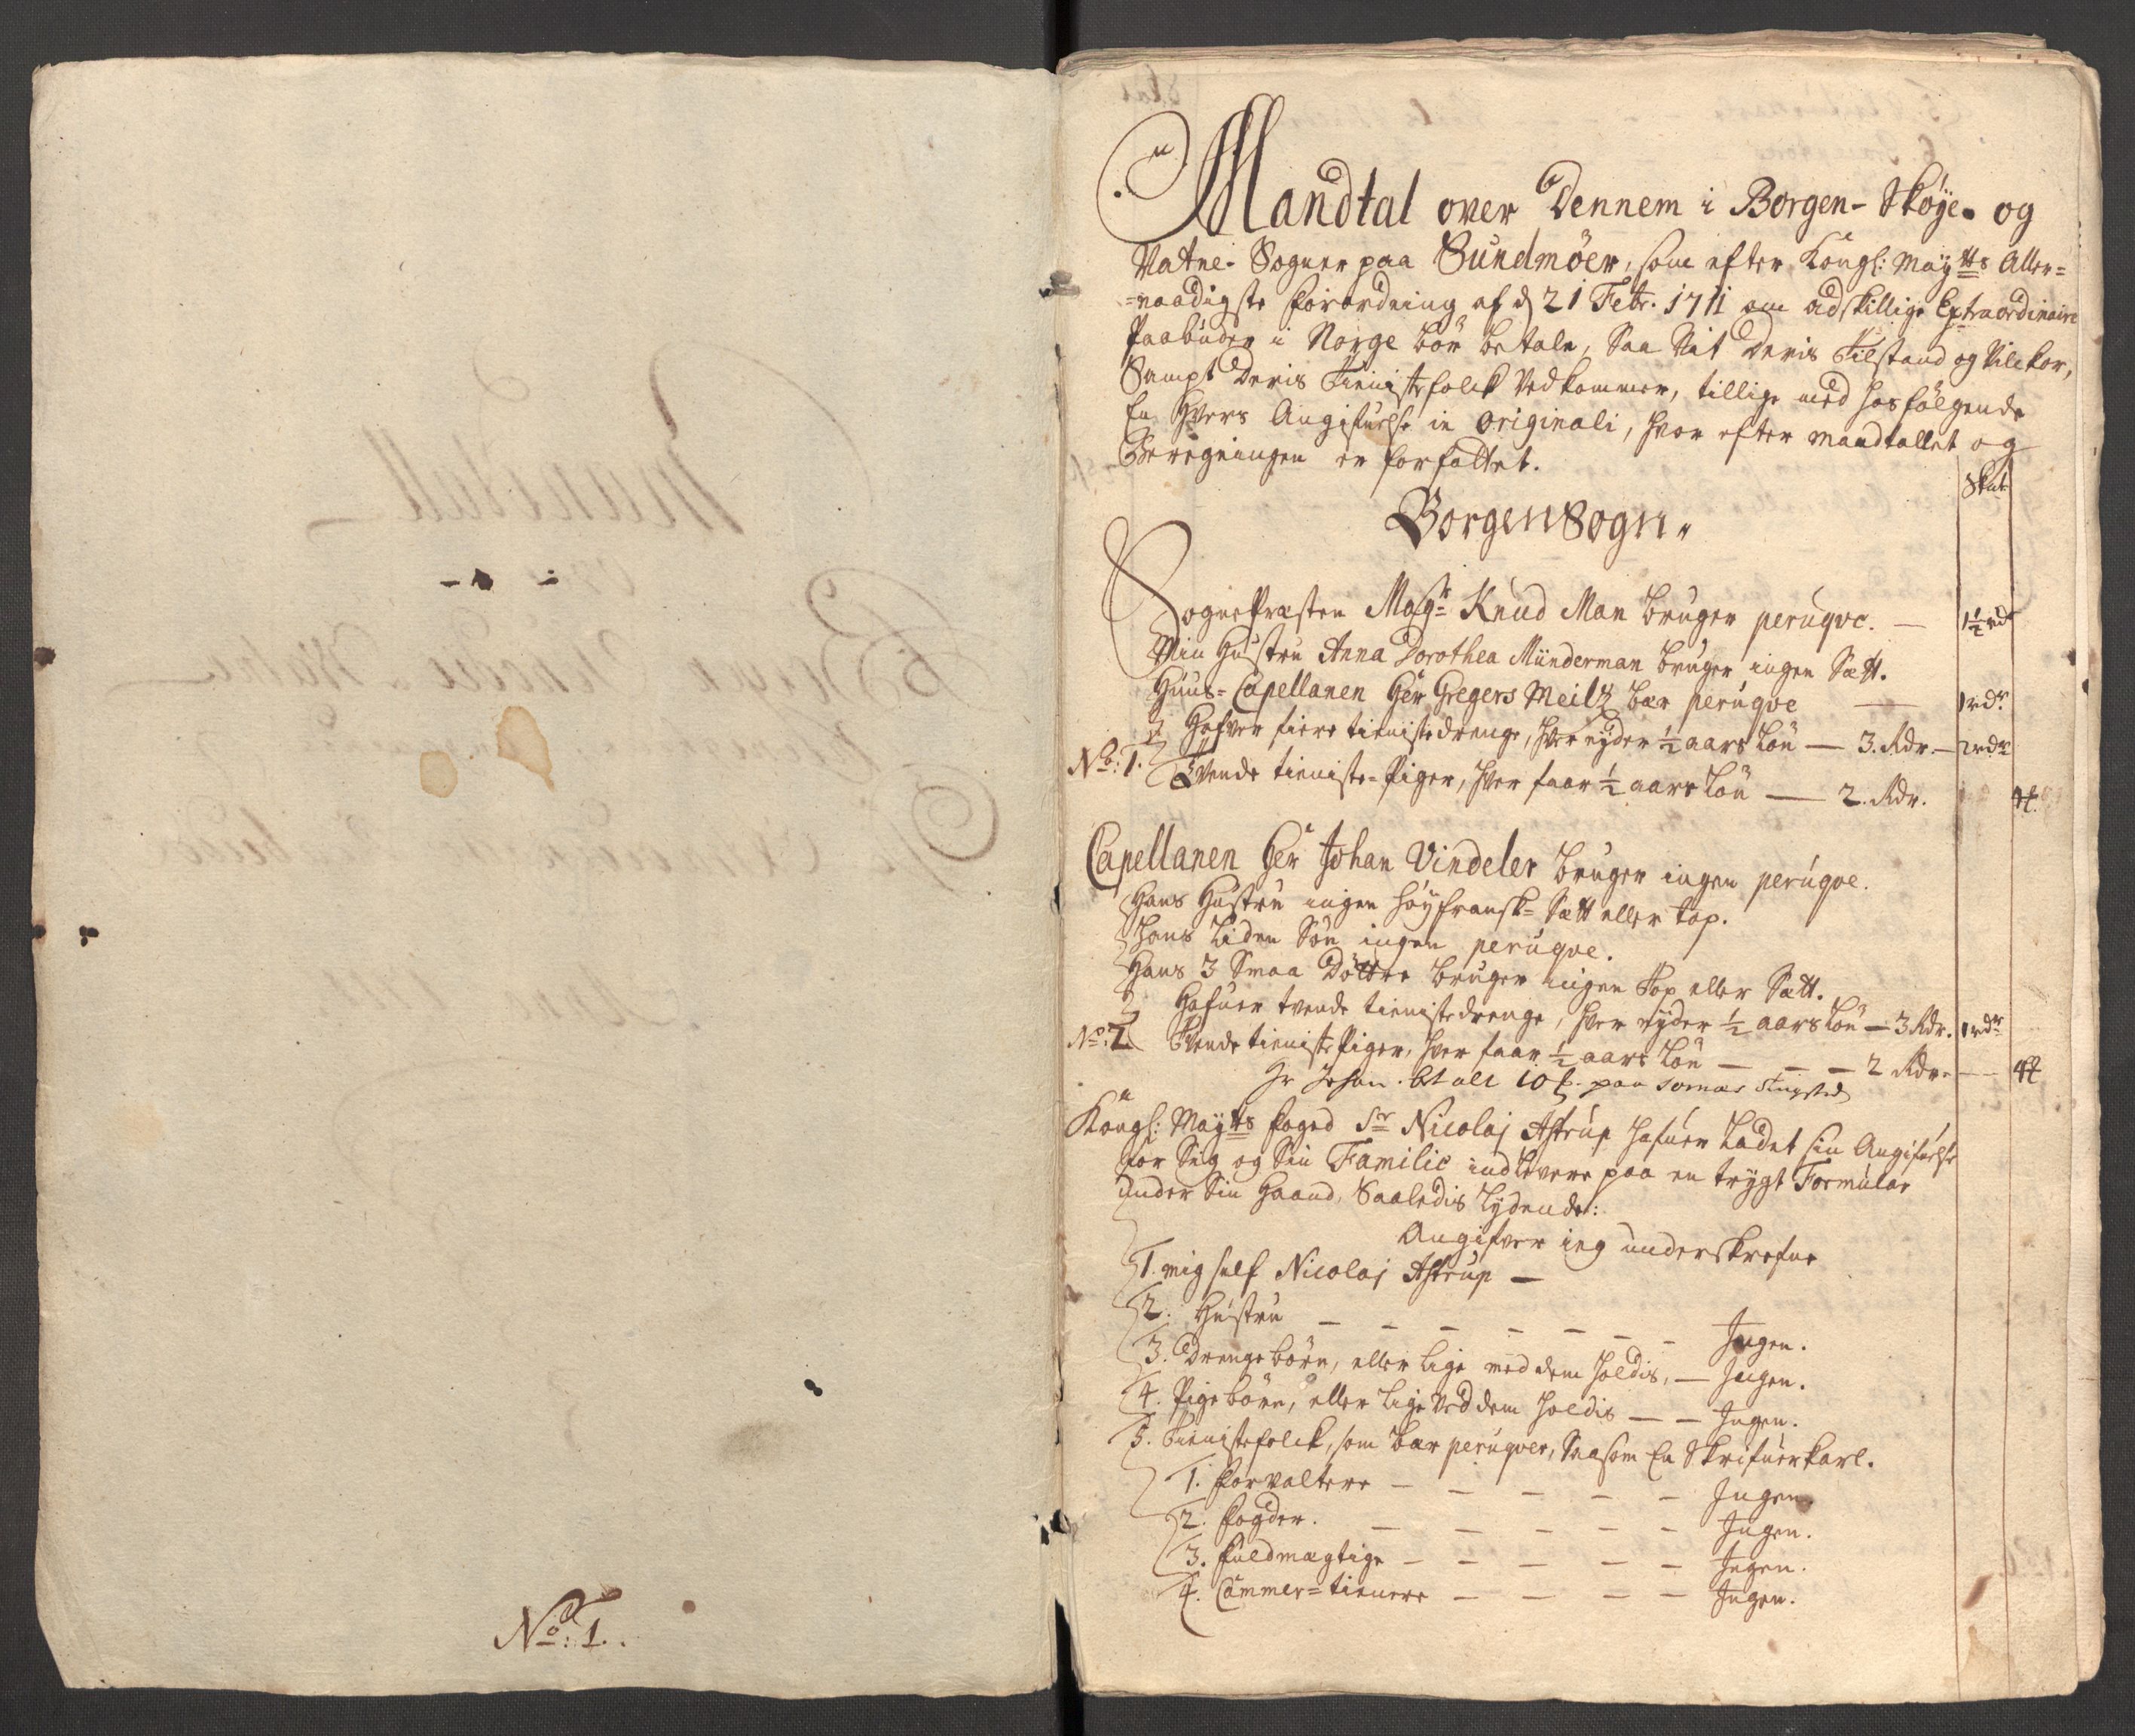 No: 1.
Mandtal over Dennem i Borgen- Skøye- og
Vatne- Sogner paa Sundmöer, som efter Kongl: Maytts Aller=
=naadigste forordning af d 21 Febr. 1711 om adskillige Extraordinaire
Paabuder i Norge bör betale, Saa vit Deris Tilstand og Vilckor,
Sampt Deris Tienistefolck Vedkommer, tillige med hosfölgende
En hvers Angifuelse in originali, hvor efter mandtallet og
Beregningen er forfattet.
Skat
Borgen Sogn.
Sognepræsten Magr Knud Man bruger peruqve. — 1½ rdr
Min Hustru Anna Dorothea Münderman bruger ingen Sett.
Huus=Capellanen Her Gregers Meilz bær peruqve — 1 rdr
No: 1. Hafver fiere tienistedrenge, hver nyder ½ aars Lön — 3. Rdr. — 2 rdr
Tvende tieniste=Piger, hver faar ½ aars Lön — 2. Rdr.
Capellanen Her Johan Vindeler bruger ingen peruqve.
Hans Hustru ingen höy fransk= Sett eller top.
Hans Liden Sön ingen peruqve.
Hans 3 Smaa Döttre bruger ingen Top eller Sett.
No: 2 Hafuer tvende tienistedrenge, hver nyder ½ aars Lön — 3 Rdr. 1 rdr
Tvende tieniste Piger, hver faar ½ aars Lön — — — 2 Rdr.
Hr Johan betalt 10 paa
Kongl: Maytts foged Sr Nicolaj Astrup hafuer Ladet sin Angifuelse
for Sig og Sin Familie indlevere paa en trygt Formular
under Sin Haand, Saaledis Lydende:
Angifver ieg underskrefne
1. mig self Nicolaj Astrup —
2. Hustru — — — — — — Ingen.
3. Drengebörn, eller lige med dem holdis, — Ingen.
4. Pigebörn, eller lige ved dem holdis — — Ingen.
5. Tienistefolck, som bær peruqver, Saasom En Skrifuerkarl.
1. forvaltere — — — — — Ingen.
2. fogder. — — — — — Ingen.
3. fuldmægtige — — — — — Ingen.
4. Cammer=tienere — — — — Ingen.